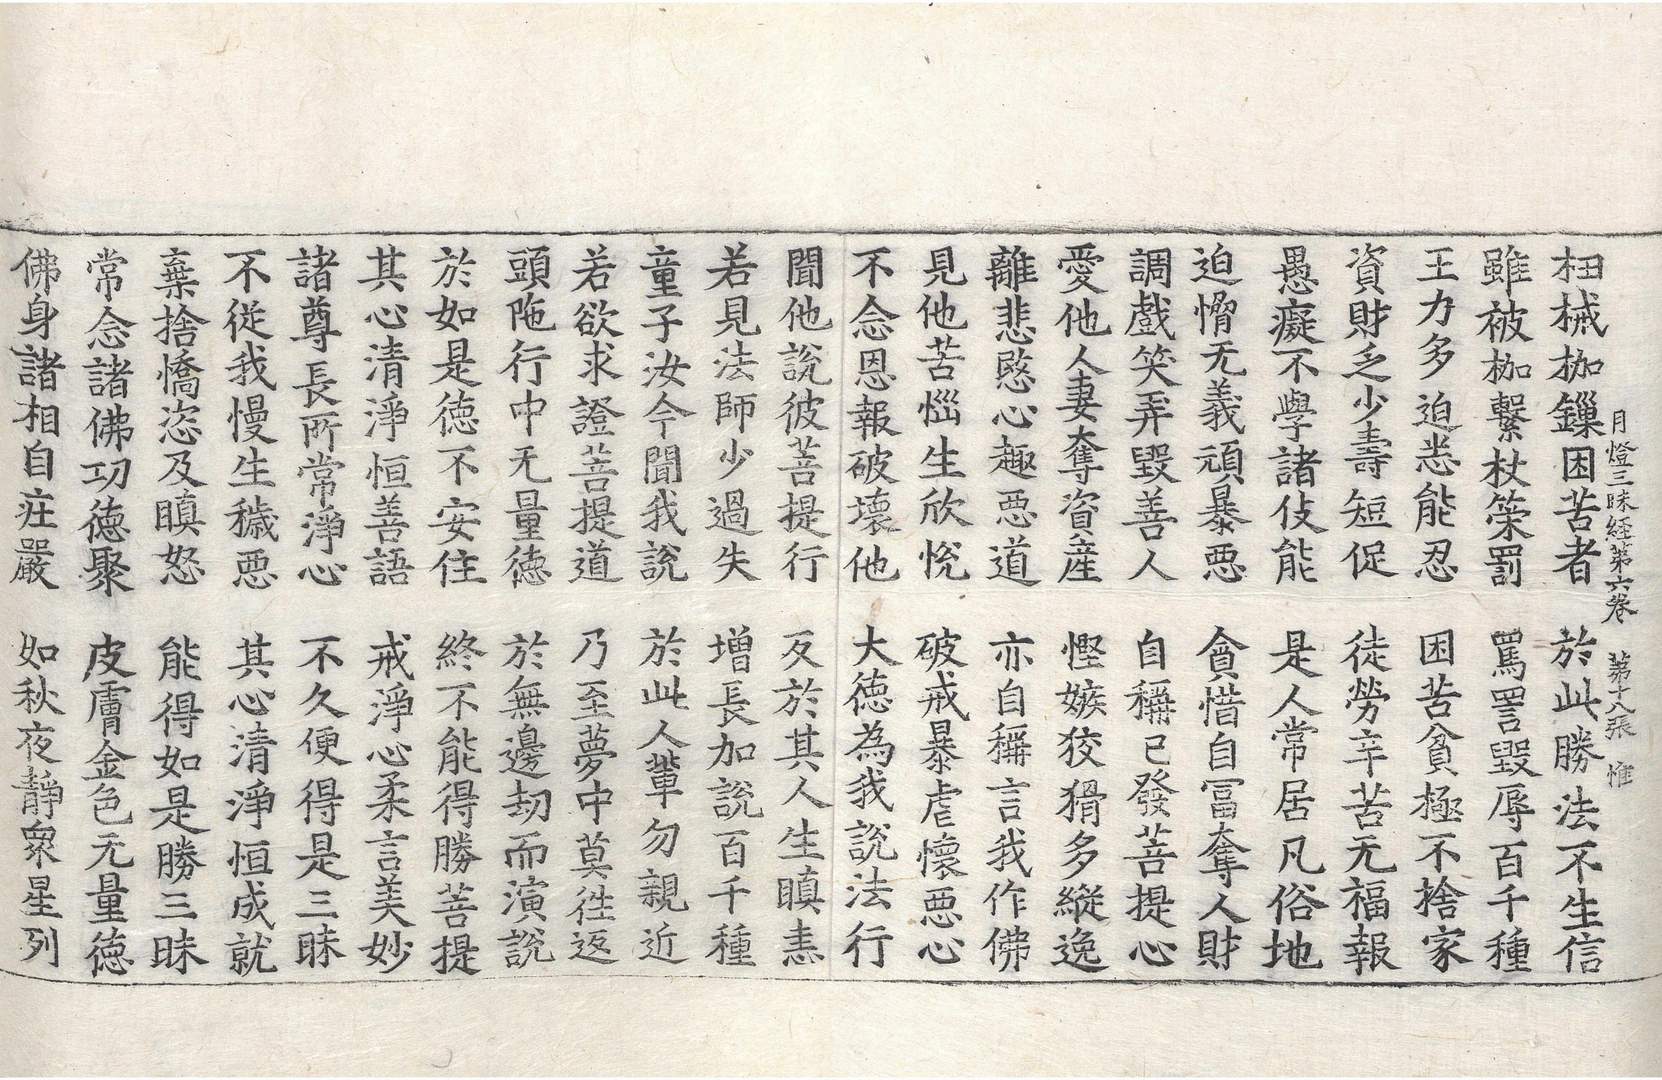 月燈三昧經第六卷　第十八張　惟
杻械枷鏁困苦者　於此勝法不生信
雖被枷繫杖策罰　罵詈毀辱百千種
王力多迫恙能忍　困苦貧極不捨家
資財乏少壽短促　徒勞辛苦无福報
愚癡不學諸伎能　是人常居凡俗地
迫懀无義頑暴惡　貪惜自冨奪人財
調戲笑弄毀善人　自稱已發菩提心
愛他人妻奪資產　慳嫉狡猾多縱逸
離悲愍心趣惡道　亦自稱言我作佛
見他苦惱生欣悅　破戒暴虐懷惡心
不念恩報破壞他　大德為我說法行
聞他說彼菩提行　反於其人生瞋恚
若見法師少過失　增長加說百千種
童子汝今聞我說　於此人輩勿親近
若欲求證菩提道　乃至夢中莫往返
頭陁行中无量德　於無邊劫而演說
於如是德不安住　終不能得勝菩提
其心清淨恒善語　戒淨心柔言美妙
諸尊長所常淨心　不久便得是三昧
不從我慢生穢惡　其心清淨恒成就
棄捨憍恣及瞋怒　能得如是勝三昧
常念諸佛功德聚　皮膚金色无量德
佛身諸相自莊嚴　如秋夜靜衆星列